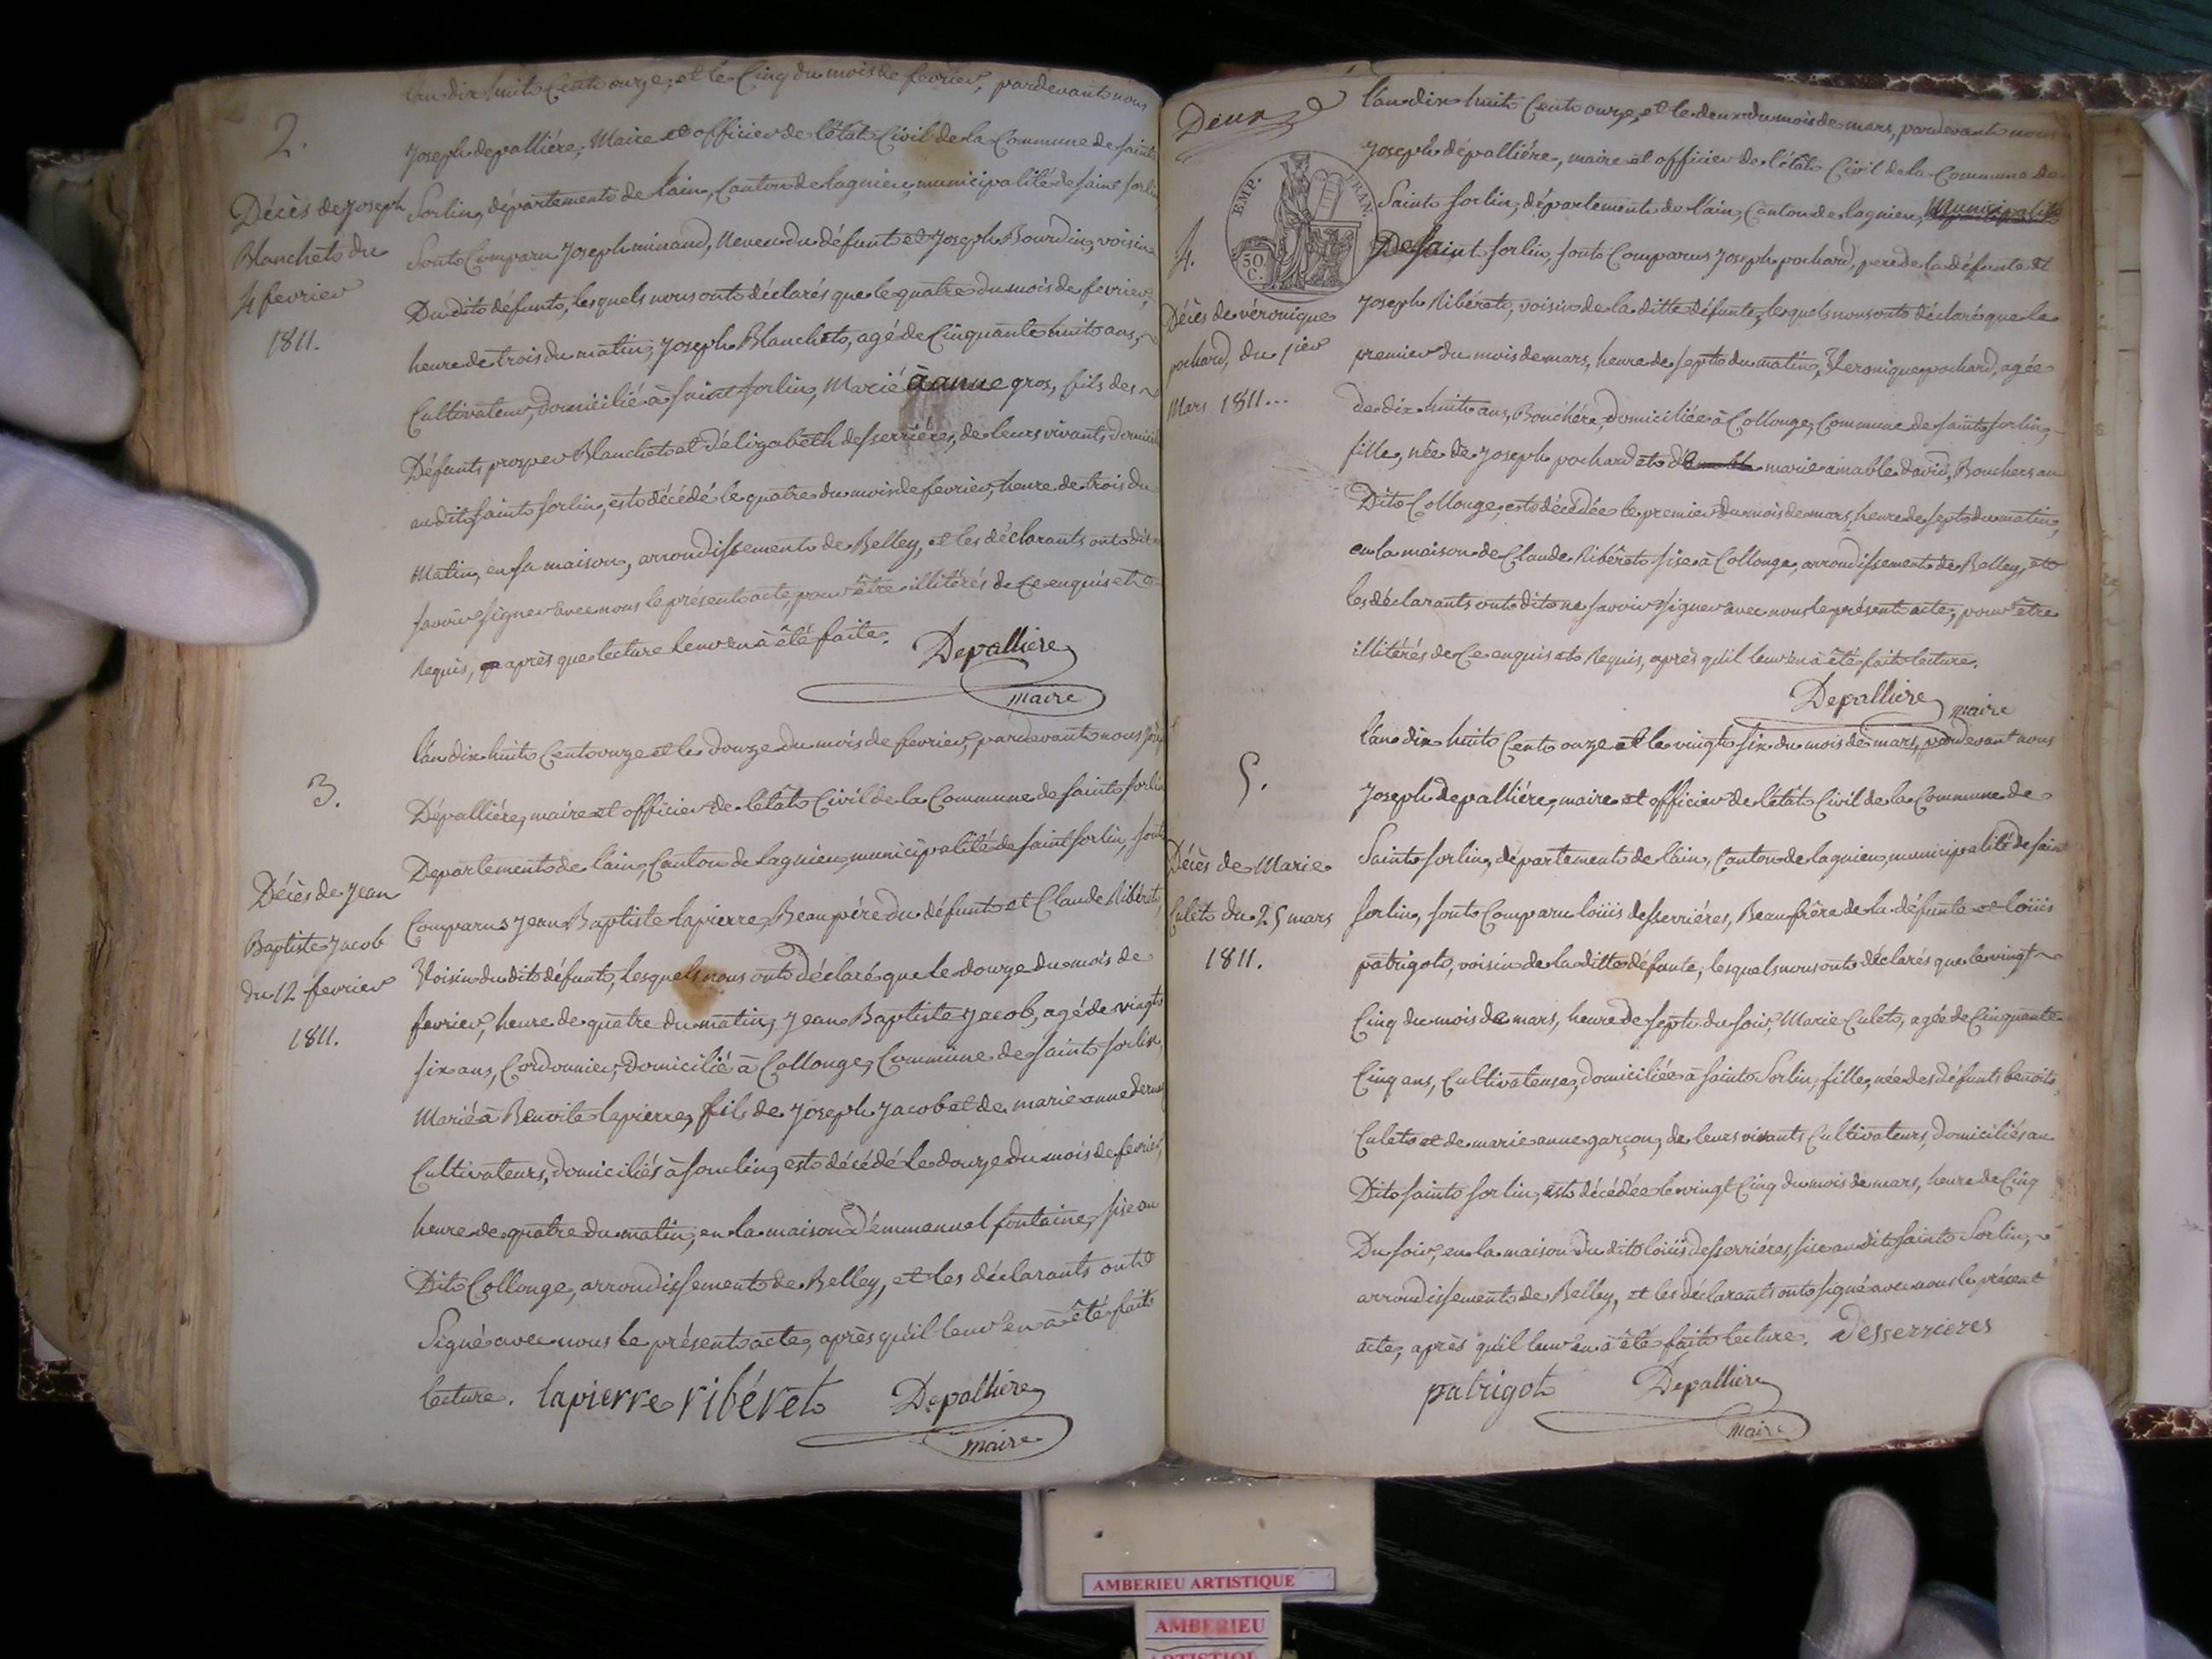 2.
Décès de Joseph
Blanchet du
4 fevrier
1811.
L'an dix huit Cent onze, et le Cinq du mois de fevrier, pardevant nous
Joseph depalliére, Maire et officier de l'état Civil de la Commune de saint
Sorlin, département de l'ain, Canton de lagnieu, municipalité de saint sorlin
Sont Comparu Joseph minand, Neveu du défunt et Joseph Bourdin, voisin
Du dit défunt, lesquels nous ont déclarés que le quatre du mois de fevrier,
heure de trois du matin, Joseph Blanchet, agé de Cinquante huit ans,
Cultivateur, domicilié à saint sorlin, Marié à anne gros, fils des
Défunts prosper Blanchet et d'élizabeth desserriéres, de leurs vivants, domicil
au dit saint sorlin, est décédé le quatre du mois de fevrier, heure de trois du
Matin, en sa maison, arrondissement de Belley, et les déclarants ont dit
savoir signer avec nous le présent acte, pour être illitérés de ce enquis et
Requis, après que lecture leur en à été faite.
Depalliere
maire
3.
Décès de Jean
Baptiste Jacob
du 12 fevrier
1811.
L'an dix huit Cent onze et le douze du mois de fevrier, pardevant nous Josep
Dépalliére, maire et officier de l'état Civil de la Commune de saint sorlin
Departement de lain, Canton de Lagnieu, municipalité de saint sorlin, sont
Comparus Jean Baptiste lapierre, Beau pére du défunt et Claude Ribéret,
Voisin du dit défunt, lesquels nous ont déclaré que le douze du mois de
fevrier, heure de quatre du matin, Jean Baptiste Jacob, agé de vingt
six ans, Cordonnier, Domicilié à Collonge, Commune de saint sorlin,
Marié à Benoite lapierre, fils de Joseph Jacob et de marie anne
Cultivateurs, domiciliés à souclin, est décédé le douze du mois de fevrier,
heure de quatre du matin, en la maison d'emmanuel fontaine, sise au
Dit Collonge, arrondissement de Belley, et les déclarants ont
Signé avec nous le présent acte, après qu'il leur en à été fait
lecture. lapierre ribéret Depalliere
maire
Deux
EMP. FRAN.
50.
C.
4.
Décès de véronique
pochard, du 1ier
Mars 1811...
L'an dix huit Cent onze, et le deux du mois de mars, pardevant nous
Joseph dépalliére, maire et officier de l'état Civil de la Commune de
Saint sorlin, département de l'ain, Canton de lagnieu, Municipalité
De saint sorlin, sont Comparus Joseph pochard, pere de la défunte et
Joseph Ribéret, voisin de la ditte défunte, lesquels nous ont déclaré que le
premier du mois de mars, heure de sept du matin, Veronique pochard, agée
de dix huit ans, Bouchére, domiciliée à Collonge, Commune de saint sorlin,
fille, née de Joseph pochard et de marie aimable david, Bouchers au
Dit Collonge, est décédée le premier du mois de mars, heure de sept du matin,
en la maison de Claude Ribéret sise à Collonge, arrondissement de Belley, et
les déclarants ont dit ne savoir signer avec nous le présent acte, pour être
illitérés de Ce enquis et Requis, après qu'il leur en à été fait lecture.
Depalliere maire
5.
Décès de Marie
Culet du 25 mars
1811.
L'an dix huit Cent onze et le vingt six du mois de mars, pardevant nous
Joseph depalliére, maire et officier de l'état Civil de la Commune de
Saint sorlin, département de l'ain, Canton de lagnieu, municipalité de sain
Sorlin, sont Comparu loüis desserriéres, Beau frère de la défunte et loüis
patrigot, voisin de la ditte défunte, lesquels nous ont déclarés que le vingt
Cinq du mois de mars, heure de sept du soir, Marie Culet, agée de Cinquante
Cinq ans, Cultivateuse, domiciliée à saint Sorlin, fille, née des défunts benoit
Culet et de marie anne garçon, de leurs vivants Cultivateurs, domiciliés au
Dit saint sorlin, est décédée le vingt Cinq du mois de mars, heure de Cinq
Du soir, en la maison du dit loüis desserriéres, sise au dit saint Sorlin,
arrondissement de Belley, et les déclarants ont signé avec nous le présent
acte, après qu'il leur en à été fait lecture. Desserrieres
patrigot Depalliere
maire
AMBERIEU ARTISTIQUE
AMBERIEU
ARTISTIQUE